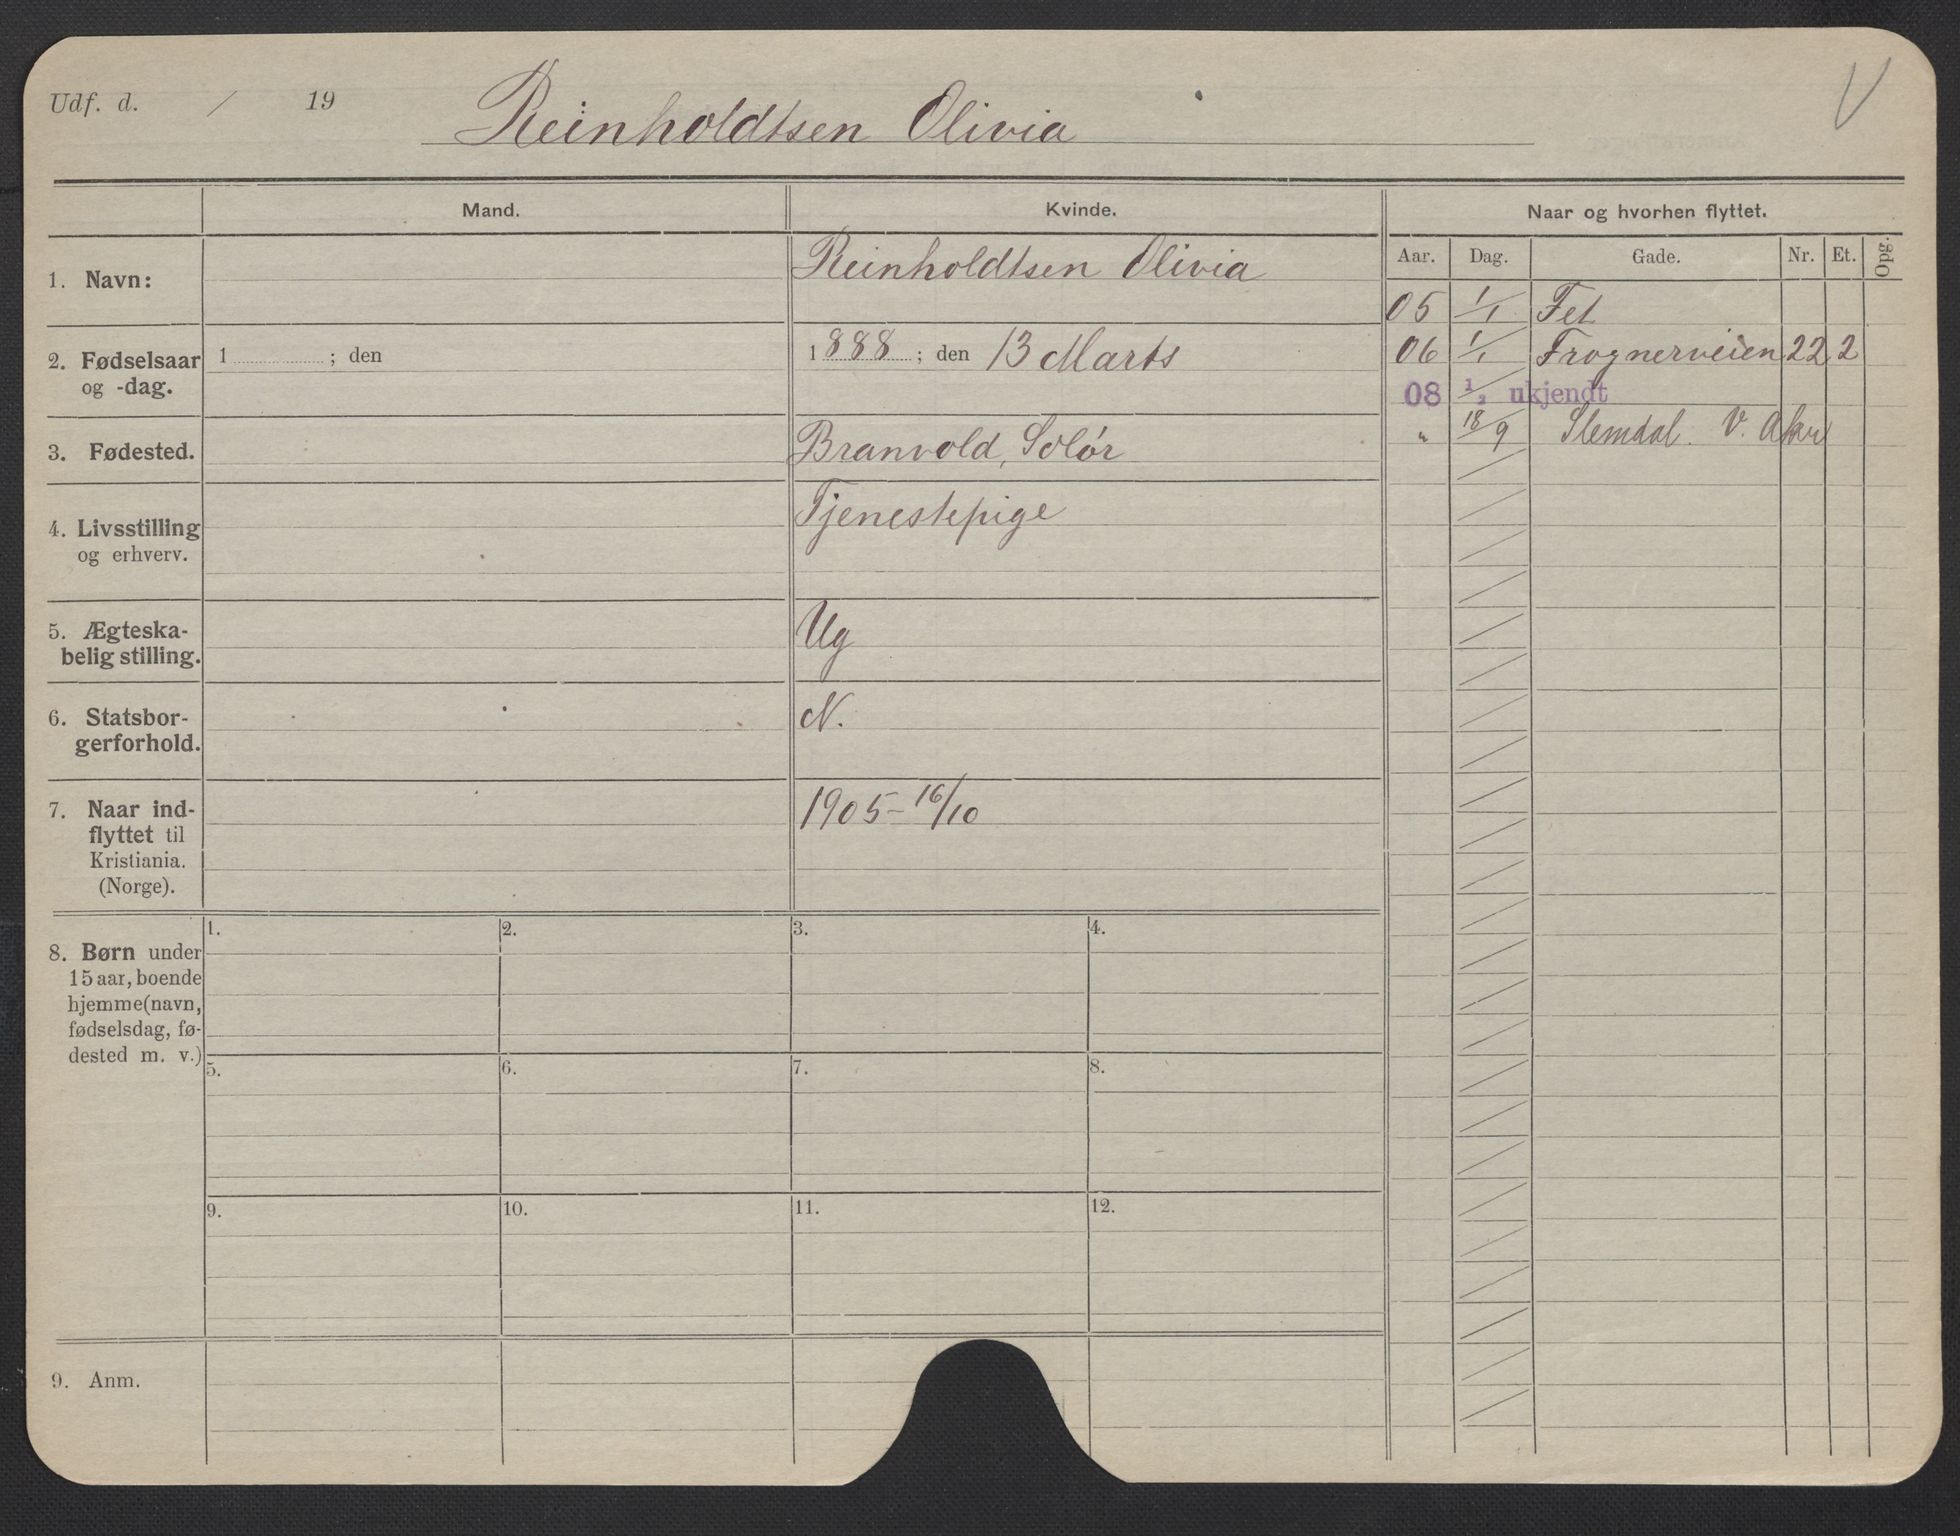 Udf. d. / 19
Reinholdtsen Olivia
V
Mand.
Kvinde.
Naar og hvorhen flyttet.
Aar. Dag. Gade. Nr. Et. Opg.
1. Navn:
Reinholdtsen Olivia
05 1/1 Fet
2. Fødselsaar
og -dag.
1 ; den
1888 ; den 13 Marts
06 1/1 Frognerveien 22 2
08 1/2 ukjendt
" 18/9 Slemdal. V. Aker
3. Fødested.
Branvold, Solør
4. Livsstilling
og erhverv.
Tjenestepige
5. Ægteska-
belig stilling.
Ug
6. Statsbor-
gerforhold.
N.
7. Naar ind-
flyttet til
Kristiania.
(Norge).
1905 - 16/10
8. Børn under
15 aar, boende
hjemme (navn,
fødselsdag, fø-
dested m. v.)
1. 2. 3. 4.
5. 6. 7. 8.
9. 10. 11. 12.
9. Anm.